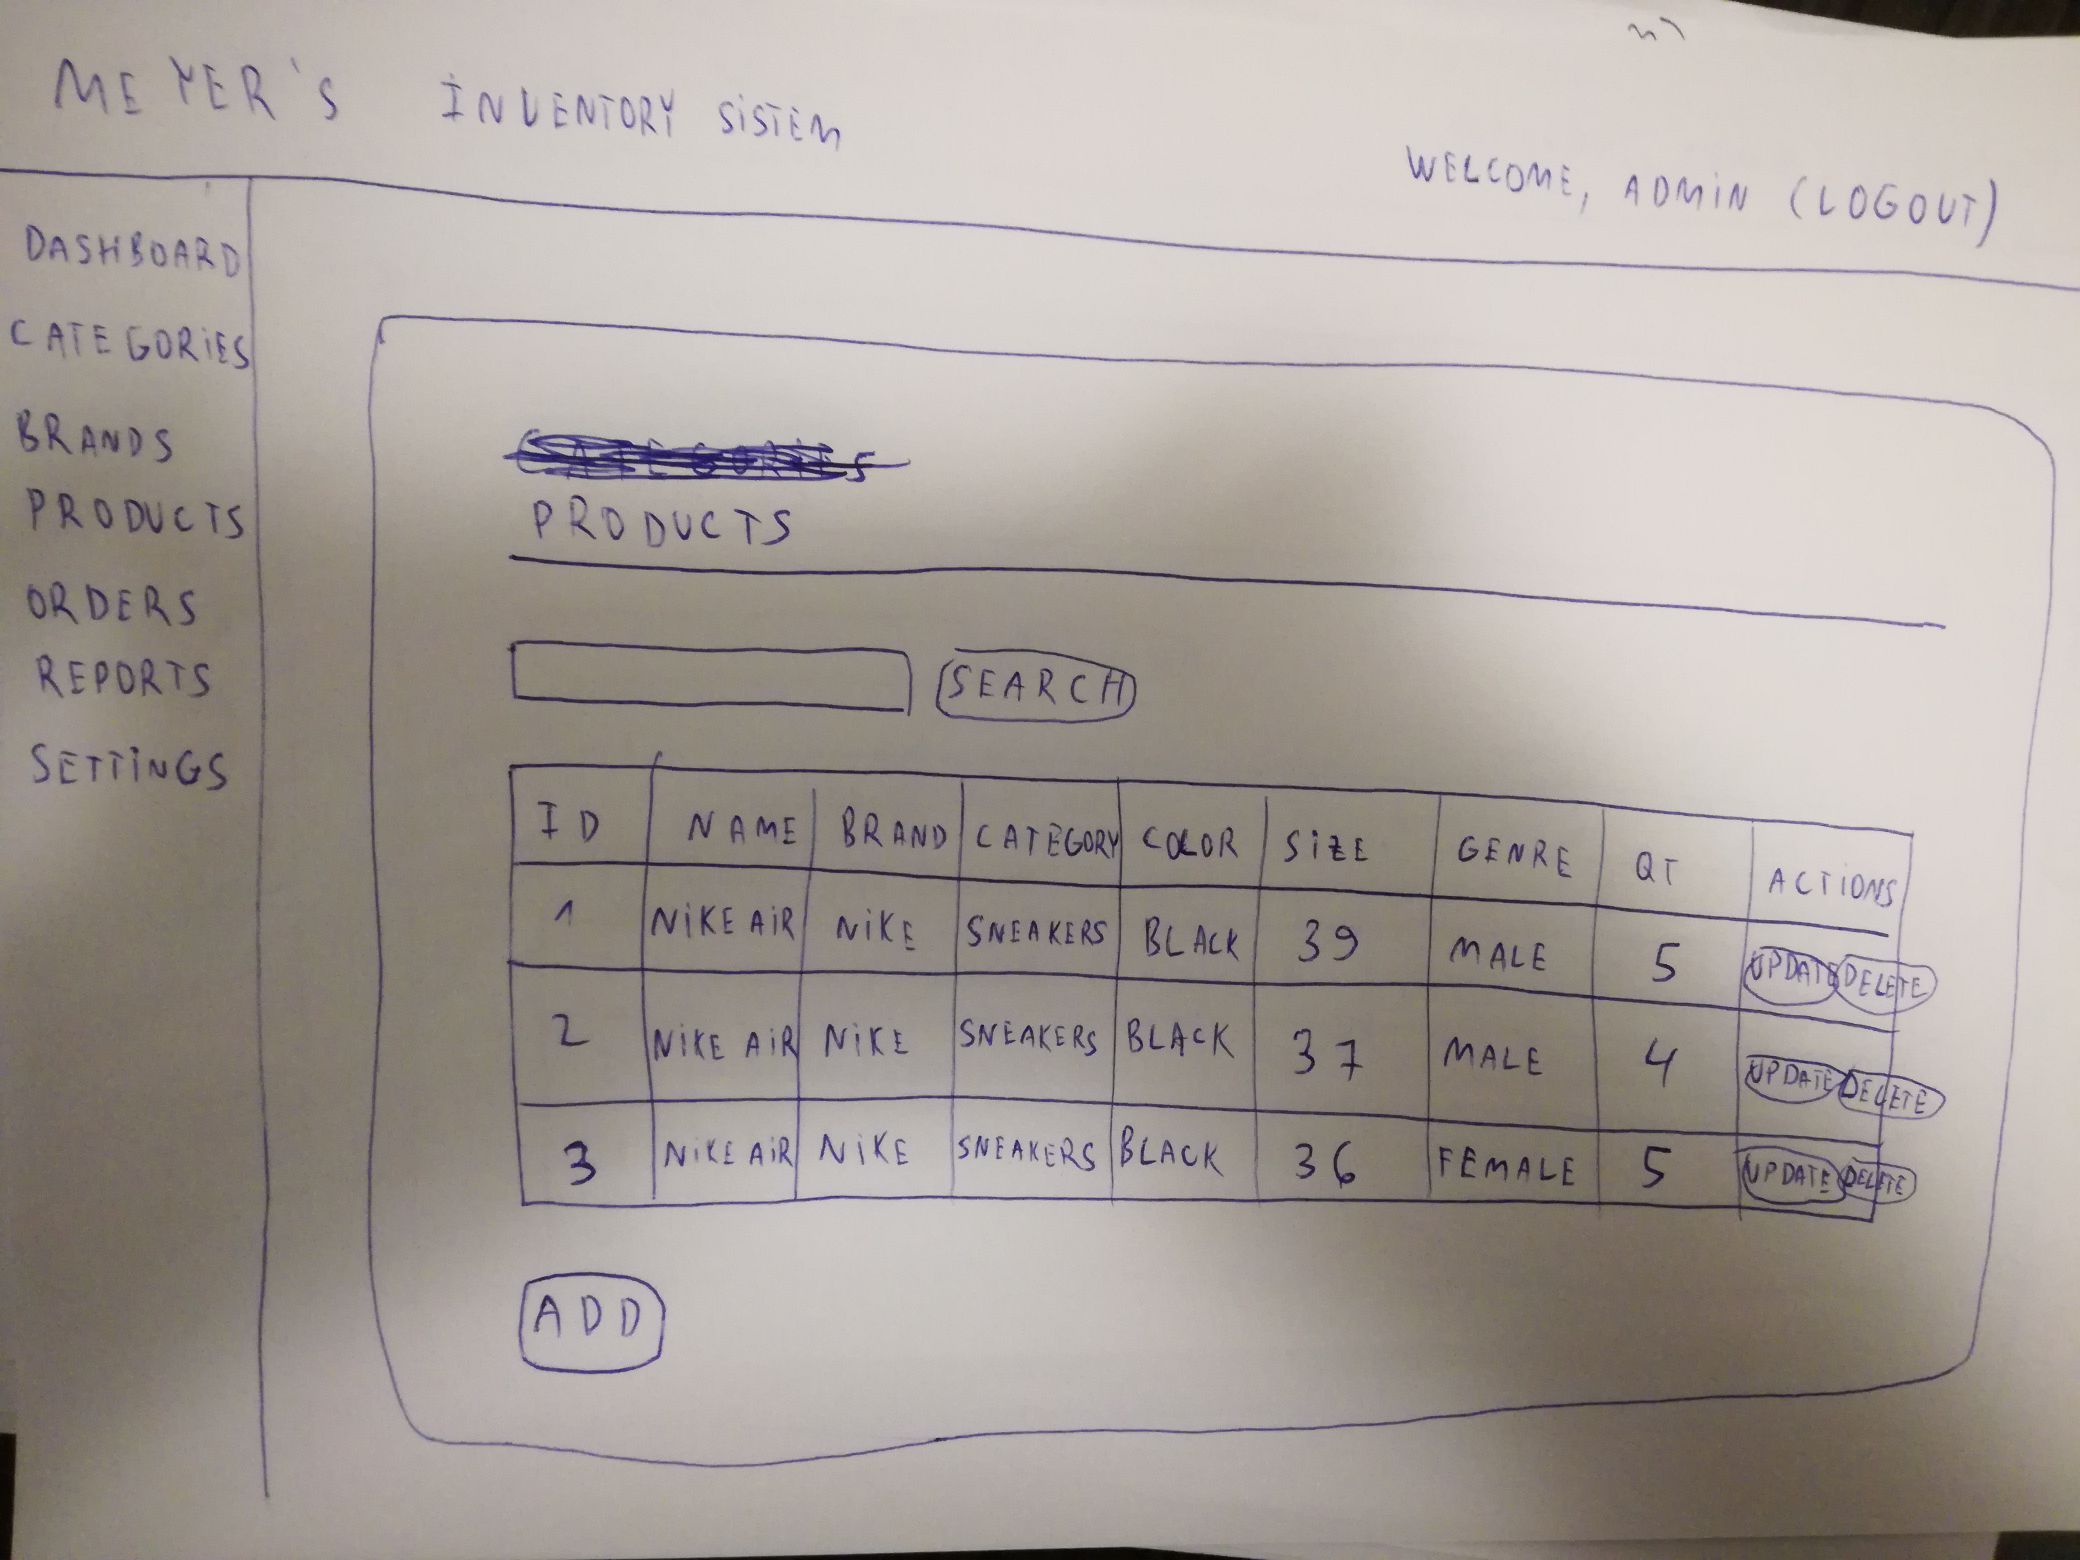 MEYER'S INVENTORY SISTEM
WELCOME, ADMIN (LOGOUT)
DASHBOARD
CATEGORIES
BRANDS
PRODUCTS
ORDERS
REPORTS
SETTINGS
CATEGORIES
PRODUCTS
SEARCH
ID NAME BRAND CATEGORY COLOR SIZE GENRE QT ACTIONS
1 NIKE AIR NIKE SNEAKERS BLACK 39 MALE 5 UPDATE DELETE
2 NIKE AIR NIKE SNEAKERS BLACK 37 MALE 4 UPDATE DELETE
3 NIKE AIR NIKE SNEAKERS BLACK 36 FEMALE 5 UPDATE DELETE
ADD